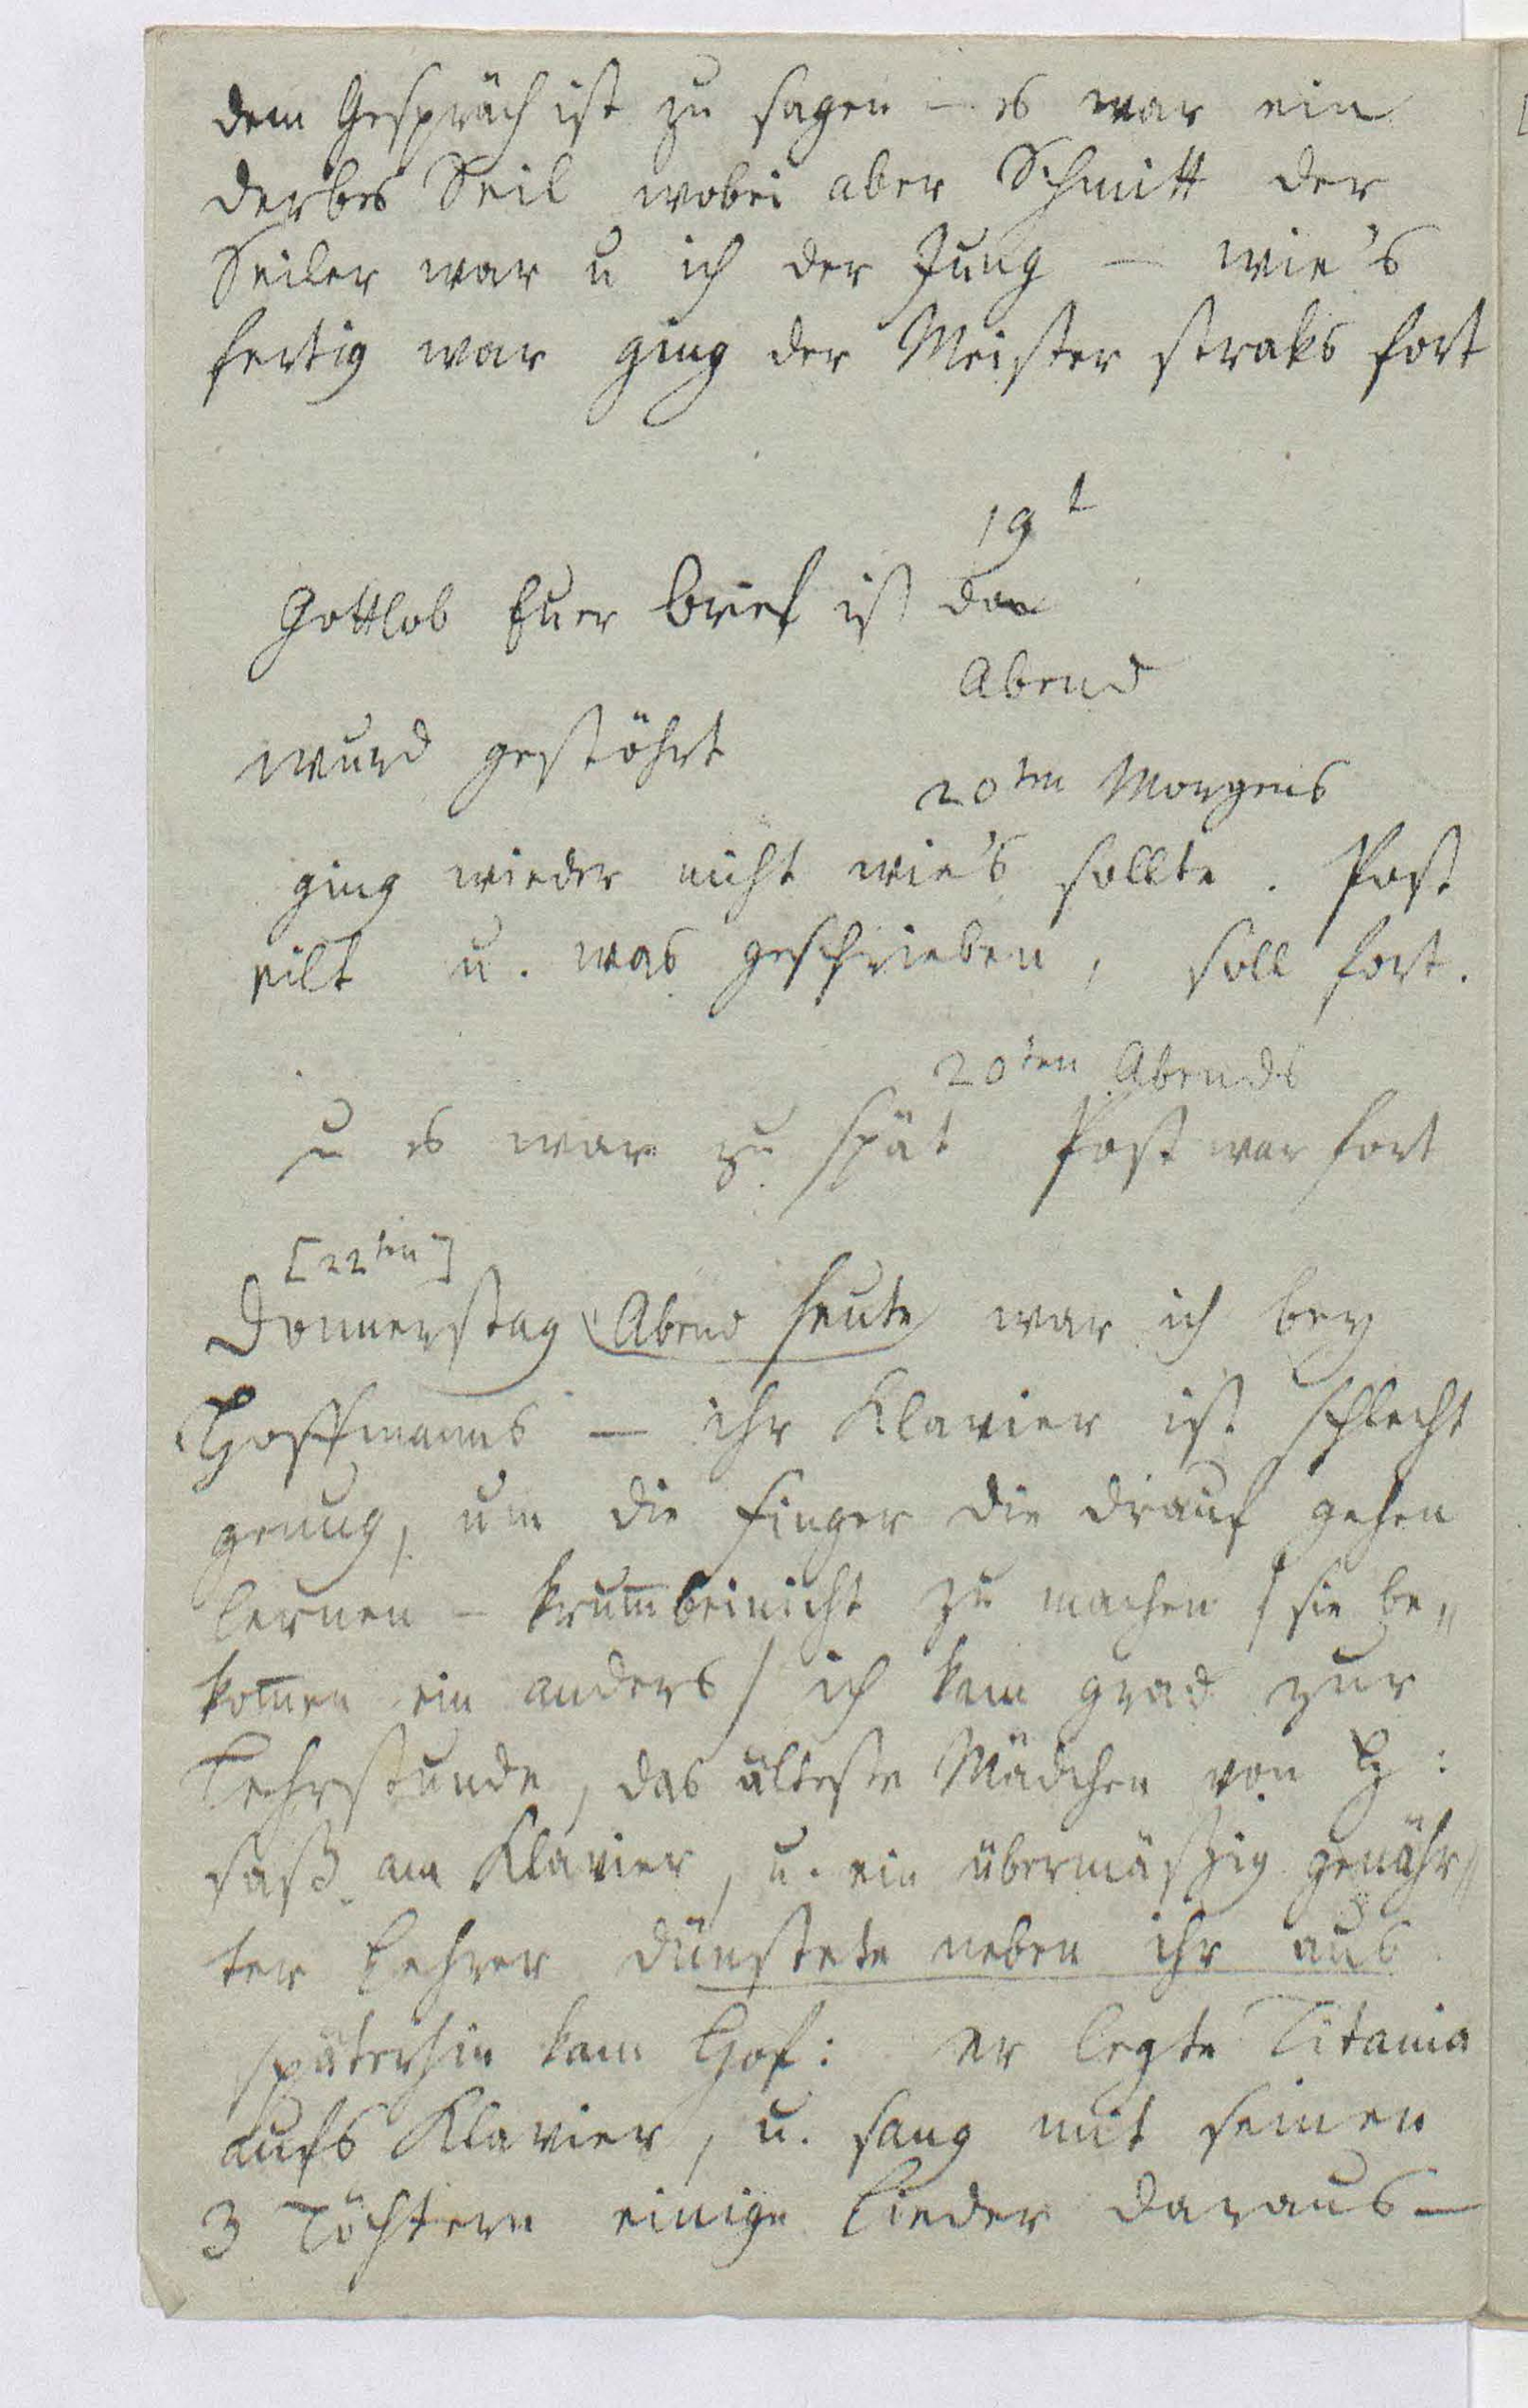 dem Gespräch ist zu sagen – es war ein
derbes Seil wobei aber Schmitt der
Seiler war u ich der Jung – wie's
fertig war ging der Meister straks fort
19t
Gottlob Euer Brief ist da
Abend
wurd gestöhrt
20ten Morgens
ging wieder nicht wie's sollte. Post
eilt u. was geschrieben, soll fort.
20ten Abends
u es war zu spät Post war fort
[22ten]
Donnerstag Abend heute war ich bey
Hoffmanns – ihr Klavier ist schlecht
genug, um die Finger die drauf gehen
lernen – krum̅beinicht zu machen / sie be„
kom̅en ein anders / ich kam grad zur
Lehrstunde, das älteste Mädchen von H:
saß am Klavier, u. ein übermäßig genähr„
ter Lehrer dünstete neben ihr aus
späterhin kam Hof: er legte Titania
aufs Klavier, u. sang mit seinen
3 Töchtern einige Lieder daraus –